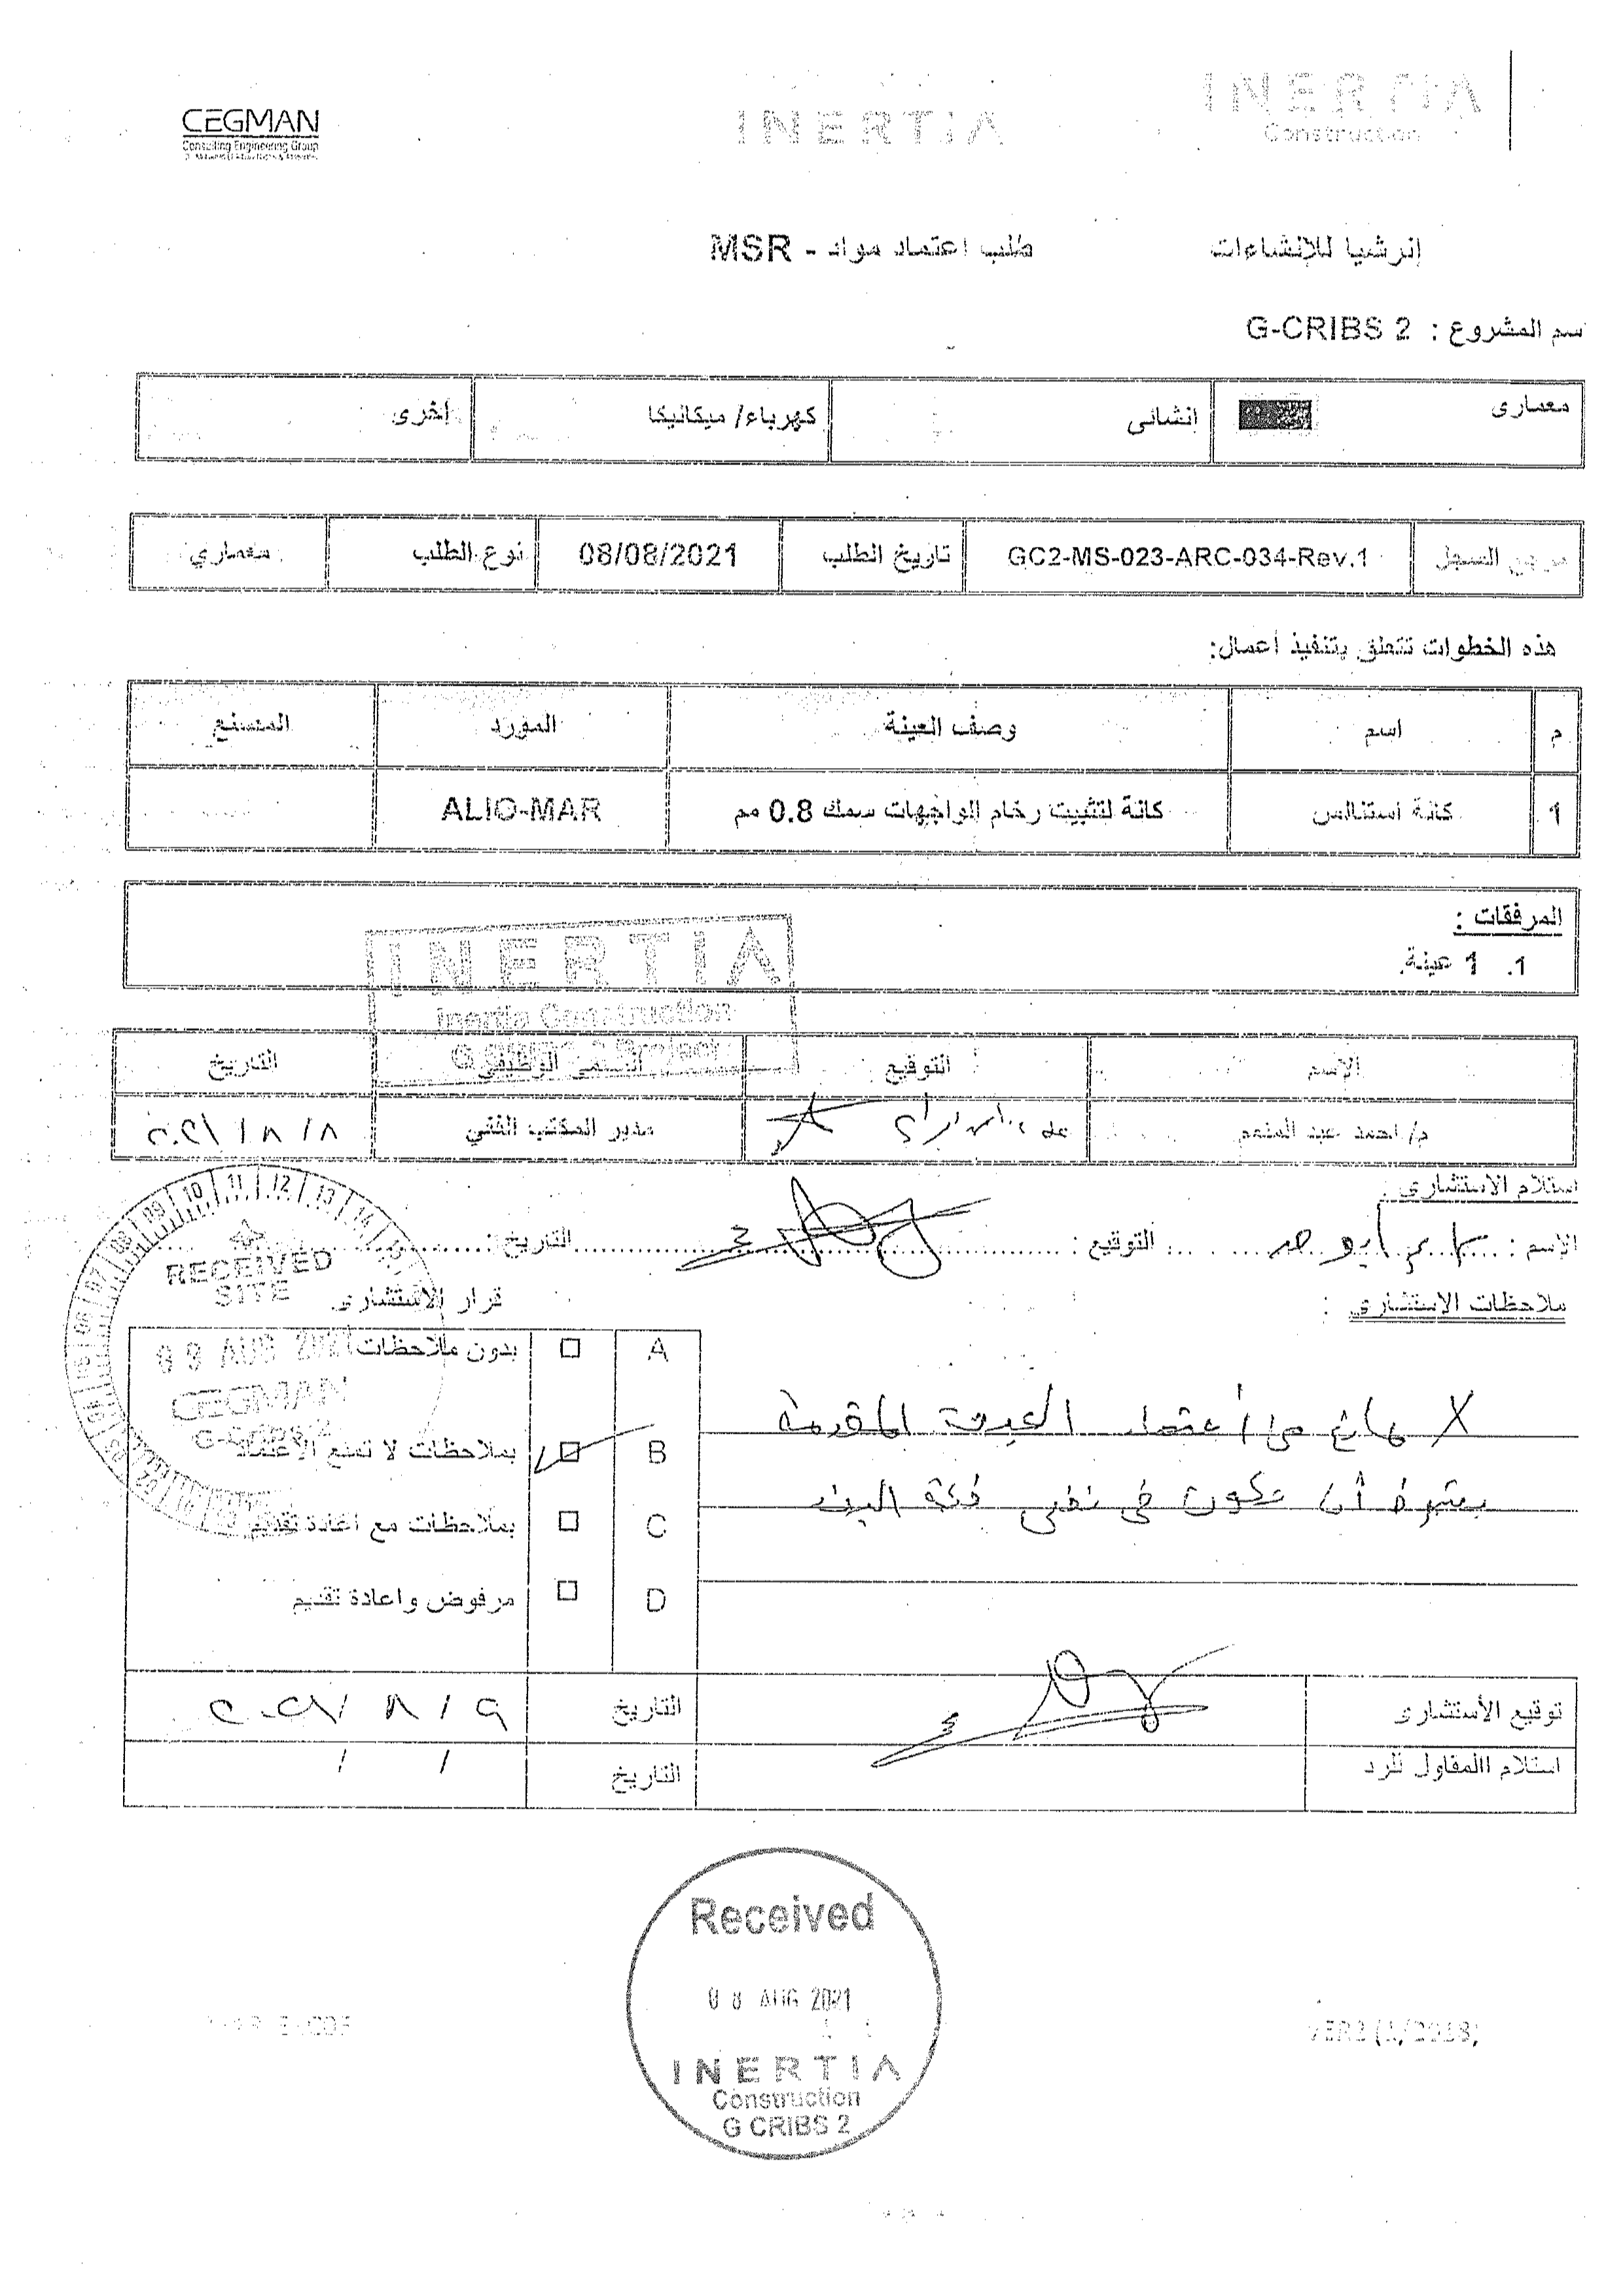 CEGMAN
Consulting Engineering Group
INERTIA
INERTIA
Construction
إنرشيا للإنشاءات
طلب اعتماد مواد - MSR
سم المشروع : G-CRIBS 2
معمارى
انشائى
كهرباء/ ميكانيكا
اخرى
السجل
GC2-MS-023-ARC-034-Rev.1
تاريخ الطلب
08/08/2021
نوع الطلب
معماري
هذه الخطوات تتعلق بتنفيذ أعمال:
م
اسم
وصف العينة
المورد
المتسنع
1
كانة استنالس
كانة لتثبيت رخام الواجهات سمك 0.8 مم
ALIO-MAR
المرفقات :
1. 1 عينة.
INERTIA
Inertia Construction
G Project
الإسم
التوقيع
المسمى الوظيفى
التاريخ
م/ احمد عبد المنعم
مدير المكتب الفني
٨/ ٨ / ٢٠٢١
استلام الاستشارى :
الإسم :
التوقيع :
التاريخ :
09 10 11 12 13 14
RECEIVED
SITE
09 AUG 2021
CEGMAN
G-Cribs 2
ملاحظات الإستشارى :
قرار الاستشارى
لا مانع من أعتماد العينة المقدمة
بشرط أن تكون فى نفس فئة البند
A
بدون ملاحظات
B
بملاحظات لا تمنع الإعتماد
C
بملاحظات مع اعادة تقديم
D
مرفوض واعادة تقديم
توقيع الأستشارى
التاريخ
٩ / ٨ / ٢٠٢١
استلام االمقاول للرد
التاريخ
/ /
Received
08 AUG 2021
INERTIA
Construction
G CRIBS 2